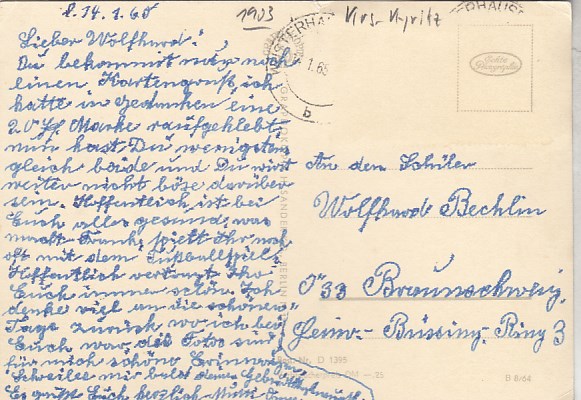 d. 14.1.65
1903
Krs. Kyritz
WUSTERHAU
1.65
b
Lieber Wolfhard!
Du bekommst nur noch
einen Kartengruß, ich
hatte in Gedanken eine
20 Pf Marke raufgeklebt,
nun hast Du wenigstens
gleich beide und Du wirst
weiter nicht böse darüber
sein. Hoffentlich ist bei
Euch alles gesund, was
macht Frank, spielt Ihr noch
oft mit dem Fußballspiel
Hoffentlich vertragt Ihr
Euch immer schön. Ich
denke viel an die schönen
Tage zurück, wo ich bei
Euch war, die Fotos sind
für mich schöne Erinnerungen
Schreibe mir bald deinen
Es grüßt Euch herzlich
An den Schüler
Wolfhard Bechlin
33 Braunschweig
Heinr.-Büssing-Ring 3
Echte Photographie
BERLIN
Nr. D 1395
B 8/64